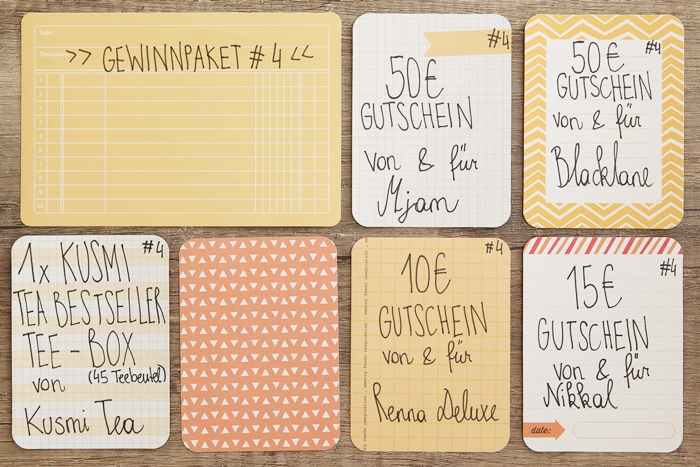 Date:
Description
>> GEWINNPAKET #4 <<
#4
50€
GUTSCHEIN
von & für
Mjam
#4
50€
GUTSCHEIN
von & für
Blacklane
#4
1x KUSMI
TEA BESTSELLER
TEE-BOX
von (45 Teebeutel)
Kusmi Tea
#4
10€
GUTSCHEIN
von & für
Renna Deluxe
#4
15€
GUTSCHEIN
von & für
Nikkal
date: